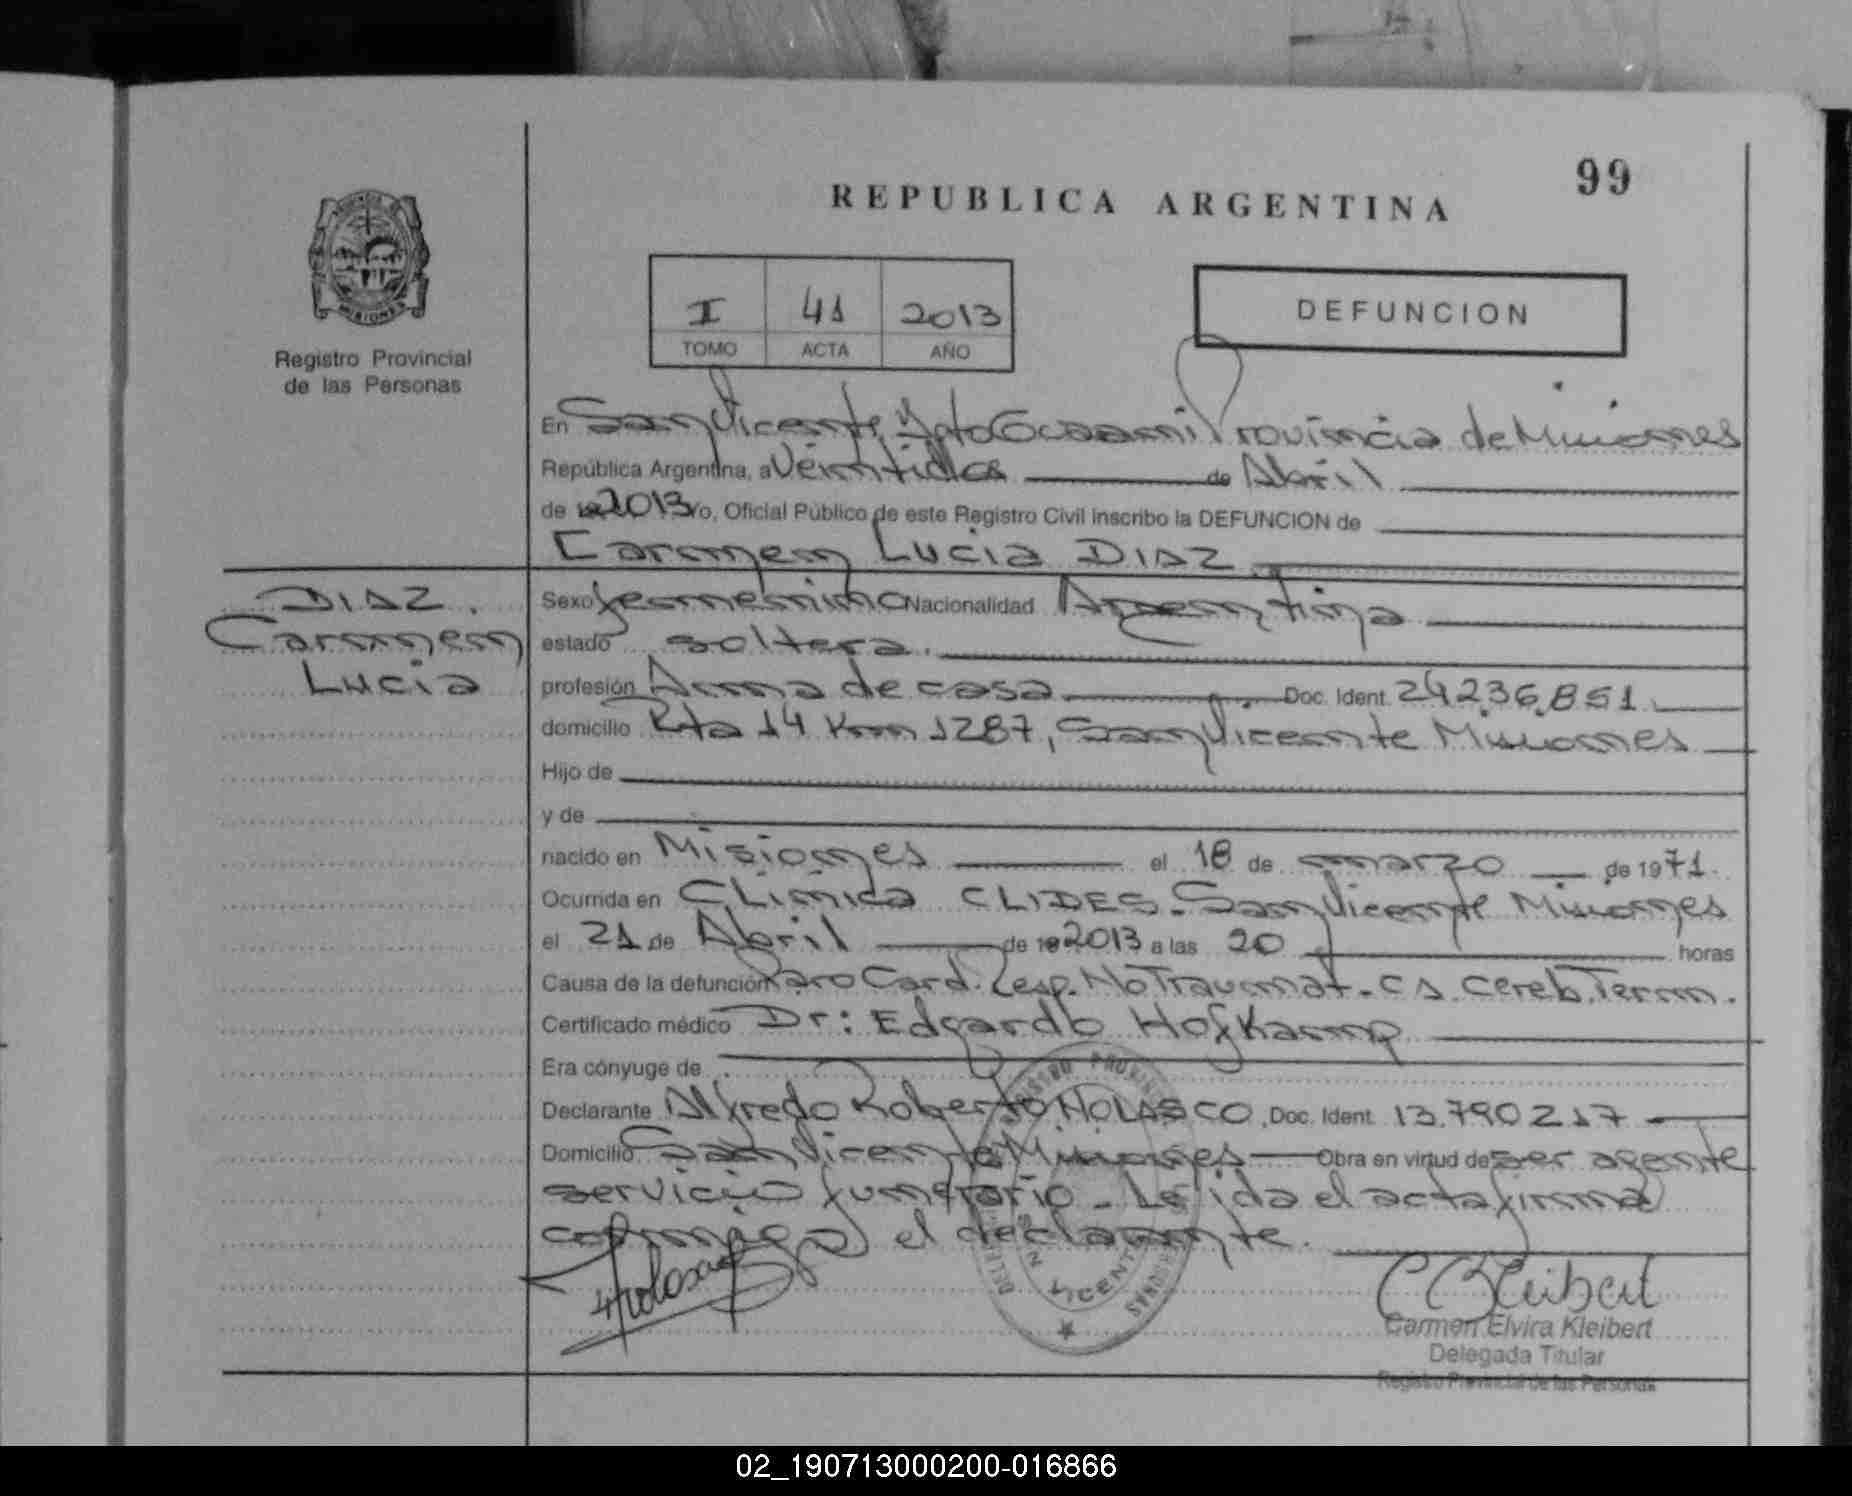 99
REPUBLICA ARGENTINA
MISIONES
Registro Provincial
de las Personas
I 41 2013
TOMO ACTA AÑO
DEFUNCION
En San Vicente, Dpto Guaraní Provincia de Misiones
República Argentina, a Veintidos de Abril
de 2013 Yo, Oficial Público de este Registro Civil inscribo la DEFUNCION de
Carmen Lucia DIAZ.
DIAZ.
Carmen
Lucia
Sexo femenino Nacionalidad Argentina
estado soltera.
profesión Ama de casa Doc. Ident. 24.236.851
domicilio Rta 14 Km 1287, San Vicente Misiones
Hijo de
y de
nacido en Misiones el 18 de marzo de 1971.
Ocurrida en Clinica CLIDES. San Vicente Misiones
el 21 de Abril de 2013 a las 20 horas
Causa de la defunción Paro Card. Resp. No Traumat. Ca. Cereb. Term.
Certificado médico Dr: Edgardo Hofkamp
Era cónyuge de
Declarante Alfredo Roberto NOLASCO. Doc. Ident. 13.790217
Domicilio San Vicente Misiones Obra en virtud de ser agente
servicio funerario - Leida el acta firma
conmigo el declarante.
Carmen Elvira Kleibert
Delegada Titular
Registro Provincial de las Personas
02_190713000200-016866